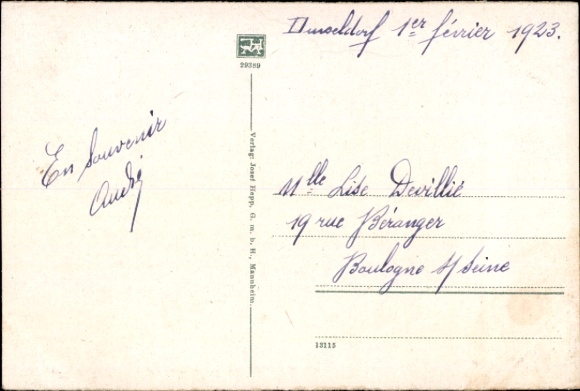 Dusseldorf 1er février 1923.
29389
En Souvenir
André
Verlag Josef Hepp, G. m. b. H., Mannheim.
Mlle Lise Devillié
19 rue Béranger
Boulogne s/ Seine
13115